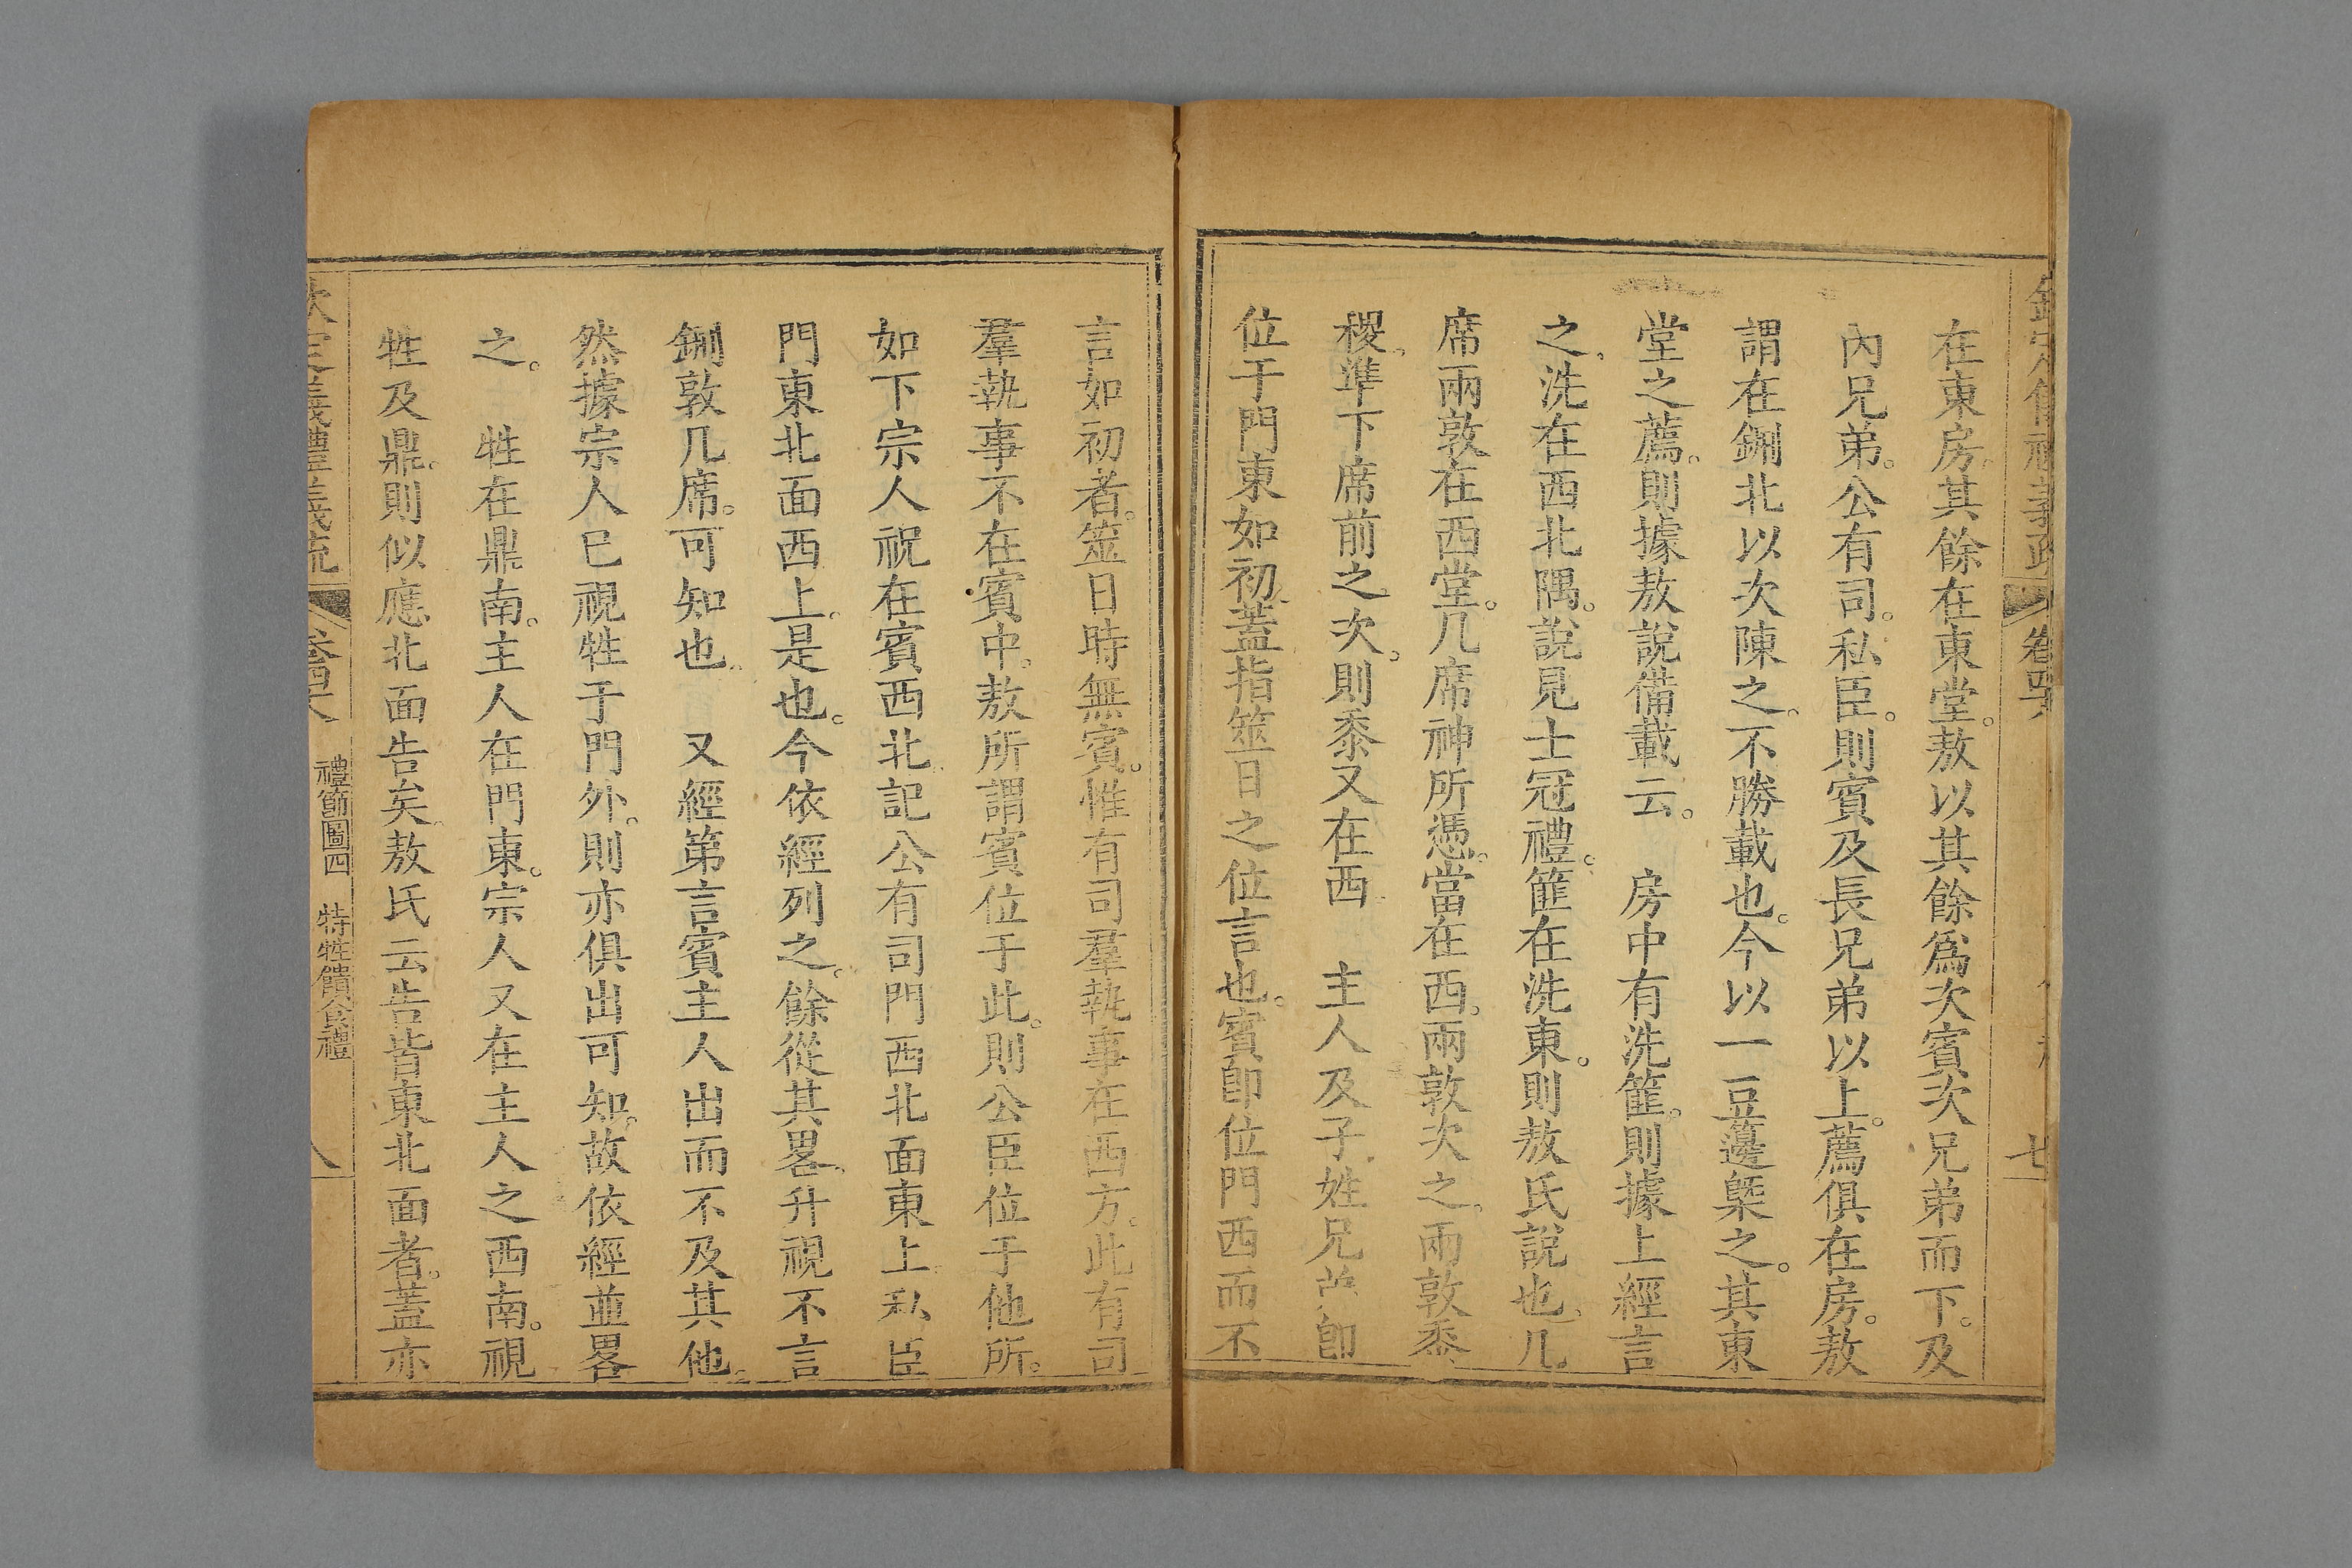 欽定儀禮義疏 卷四十八 七
在東房。其餘在東堂。敖以其餘爲次賓次兄弟而下。及
內兄弟。公有司。私臣。則賓及長兄弟以上。薦俱在房。敖
謂在鉶北以次陳之。不勝載也。今以一豆籩槩之。其東
堂之薦。則據敖說備載云。 房中有洗篚。則據上經言
之。洗在西北隅。說見士冠禮。篚在洗東。則敖氏說也。几
席兩敦在西堂。几席神所憑。當在西。兩敦次之。兩敦黍
稷。準下席前之次。則黍又在西 主人及子姓兄弟卽
位于門東如初。蓋指筮日之位言也。賓卽位門西而不
言如初者。筮日時無賓。惟有司羣執事在西方。此有司
羣執事不在賓中。敖所謂賓位于此。則公臣位于他所。
如下宗人祝在賓西北。記公有司門西北面東上。私臣
門東北面西上。是也。今依經列之。餘從其畧。升視不言
鉶敦几席。可知也 又經第言賓主人出而不及其他。
然據宗人巳視牲于門外。則亦俱出可知。故依經並畧
之。 牲在鼎南。主人在門東。宗人又在主人之西南。視
牲及鼎。則似應北面告矣。敖氏云告皆東北面者。蓋亦
欽定義禮義疏 卷四十八 禮節圖四 特牲饋食禮 八